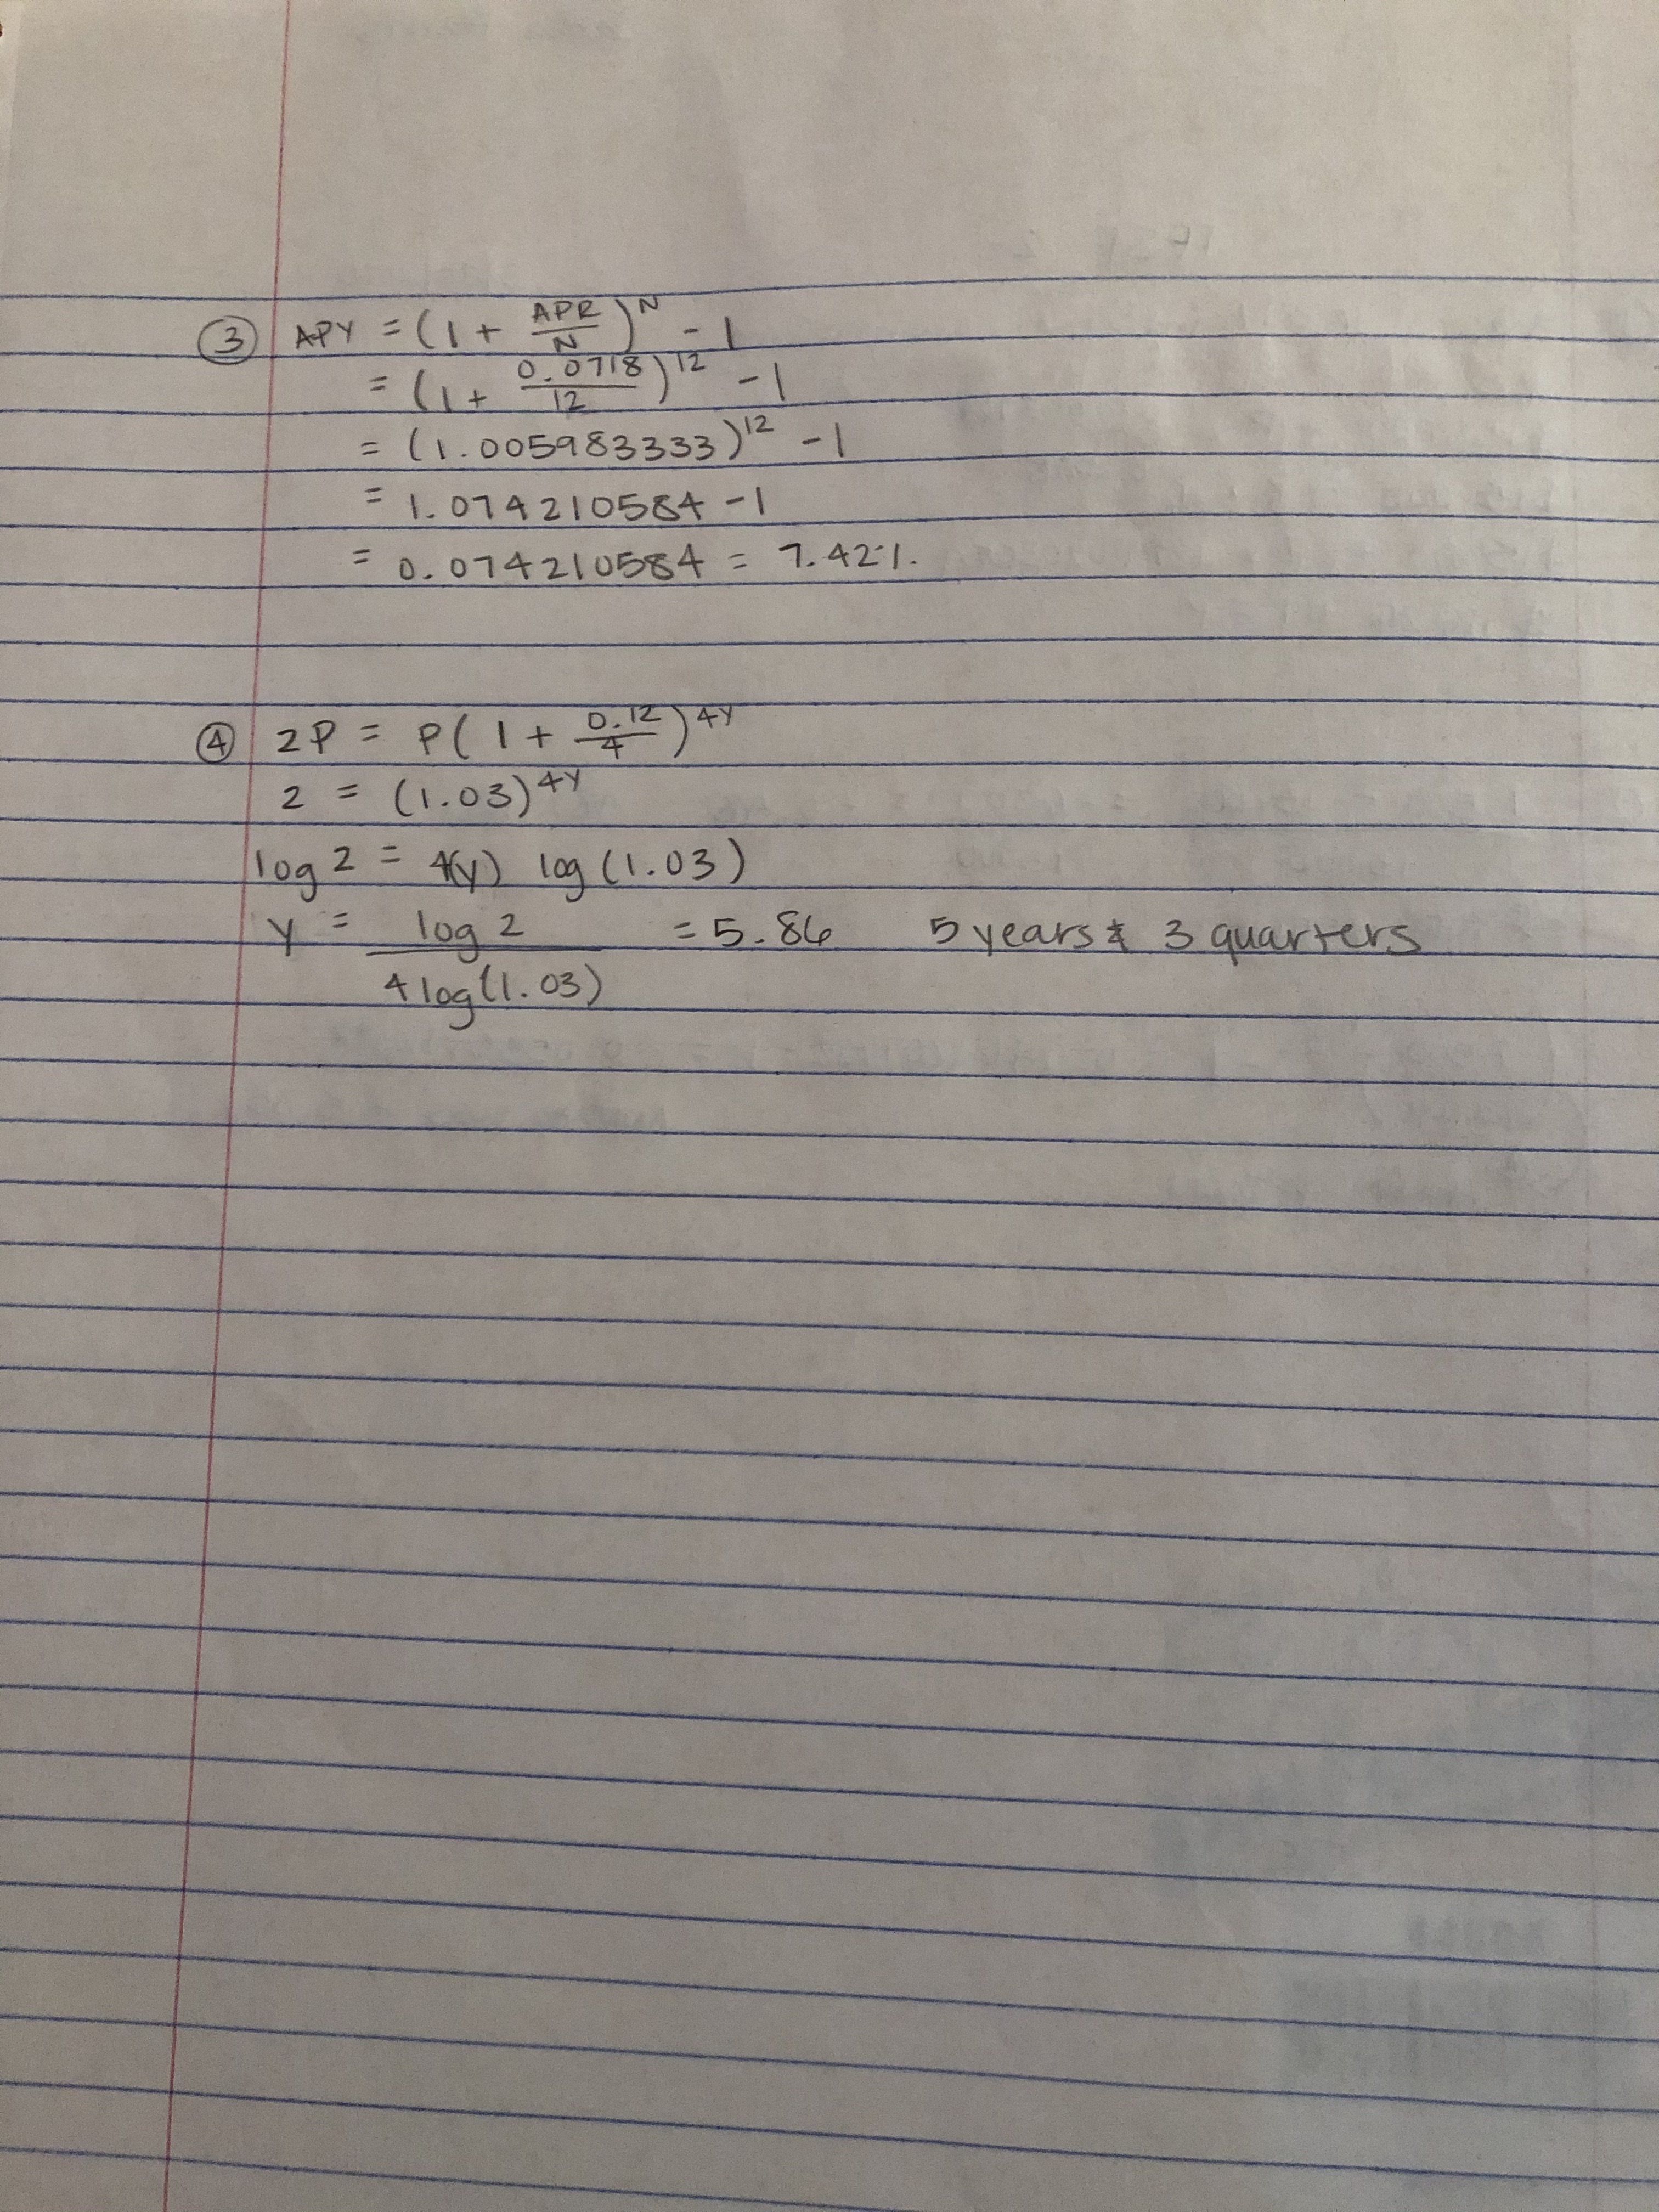 ③ APY = (1 + APR/N)^N - 1
= (1 + 0.0718/12)^12 - 1
= (1.005983333)^12 - 1
= 1.074210584 - 1
= 0.074210584 = 7.42%.
④ 2P = P(1 + 0.12/4)^4Y
2 = (1.03)^4Y
log 2 = 4(y) log (1.03)
Y = log 2 / 4 log(1.03) = 5.86 5 years & 3 quarters